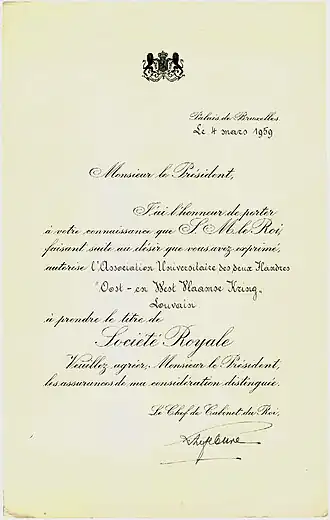 Palais de Bruxelles
Le 4 mars 1959
Monsieur le Président,
J'ai l'honneur de porter
à votre connaissance que S. M. le Roi,
faisant suite au désir que vous avez exprimé,
autorise l'Association Universitaire des deux Flandres
"Oost- en West Vlaamse Kring"
Louvain
à prendre le titre de
Société Royale
Veuillez agréer, Monsieur le Président,
les assurances de ma considération distinguée.
Le Chef de Cabinet du Roi,